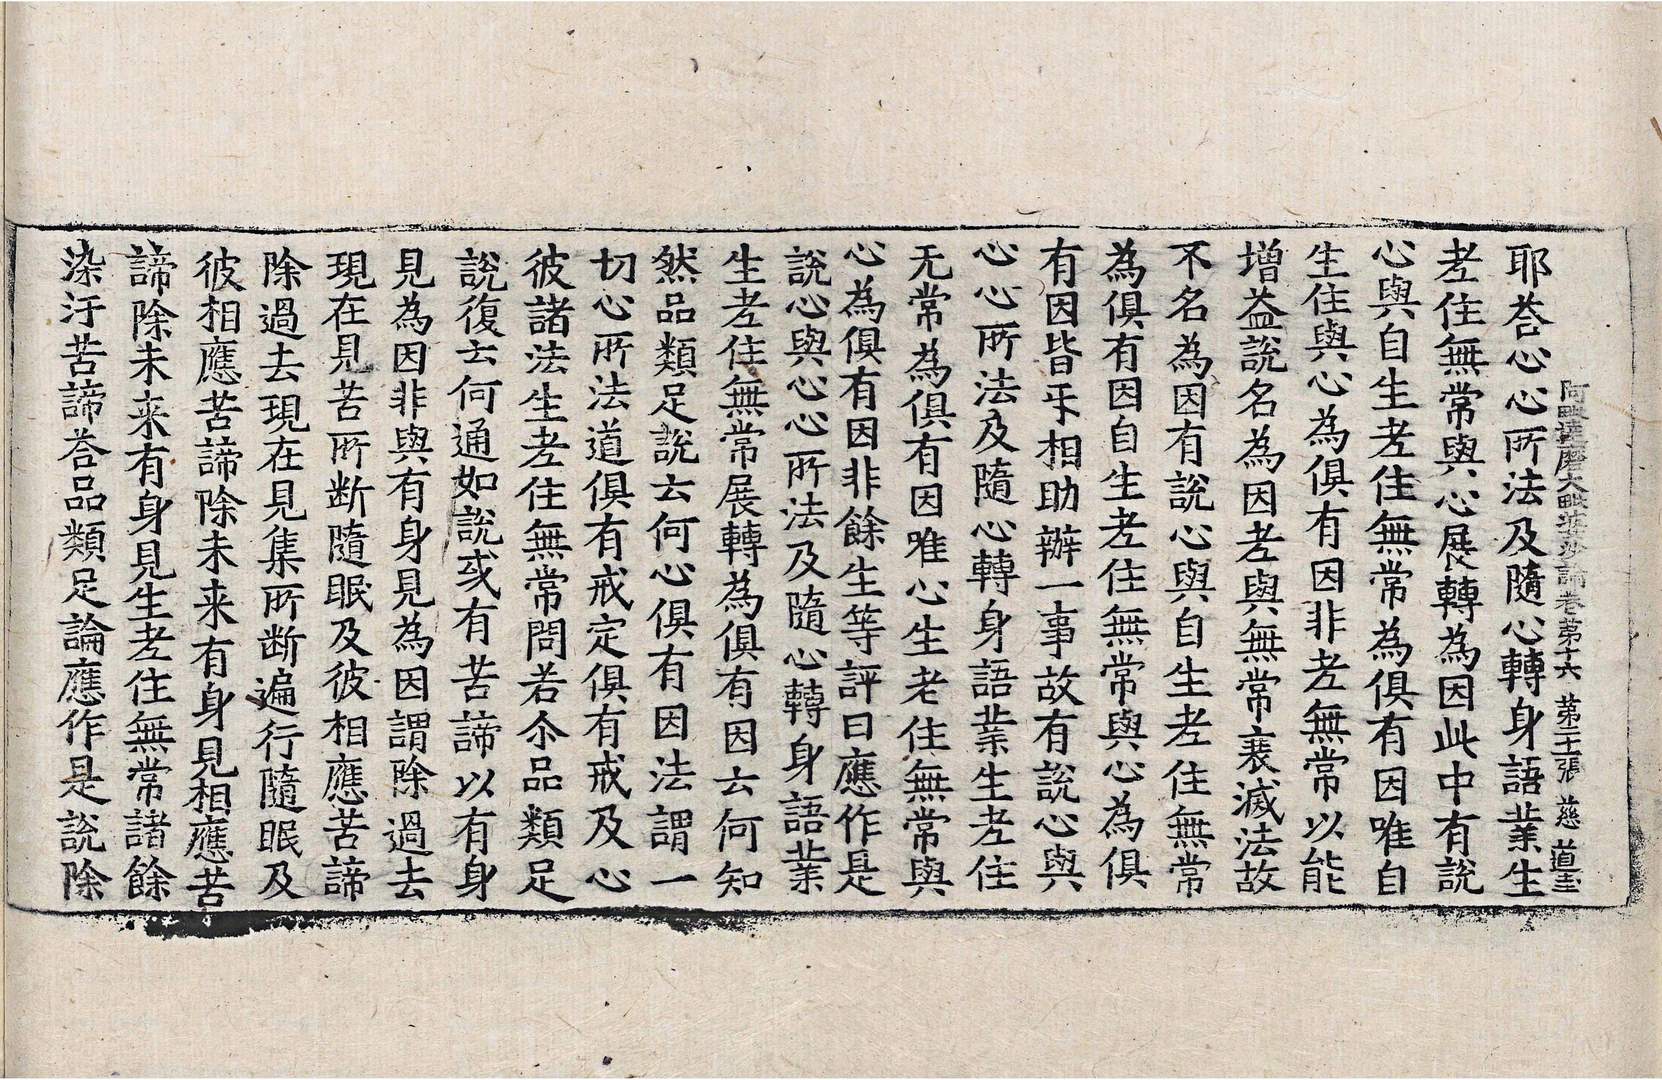 阿毗達磨大毗婆沙論卷第十六 第二十張 慈 道主
耶荅心心所法及隨心轉身語業生
老住無常與心展轉為因此中有說
心與自生老住無常為俱有因唯自
生住與心為俱有因非老無常以能
增益說名為因老與無常衰滅法故
不名為因有說心與自生老住無常
為俱有因自生老住無常與心為俱
有因皆㸦相助辦一事故有說心與
心心所法及隨心轉身語業生老住
无常為俱有因唯心生老住無常與
心為俱有因非餘生等評曰應作是
說心與心心所法及隨心轉身語業
生老住無常展轉為俱有因云何知
然品類足說云何心俱有因法謂一
切心所法道俱有戒定俱有戒及心
彼諸法生老住無常問若尒品類足
說復云何通如說或有苦諦以有身
見為因非與有身見為因謂除過去
現在見苦所断隨眠及彼相應苦諦
除過去現在見集所断遍行隨眠及
彼相應苦諦除未来有身見相應苦
諦除未来有身見生老住無常諸餘
染汙苦諦荅品類足論應作是說除